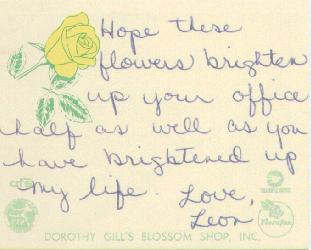 Hope these
flowers brighten
up your office
half as well as you
have brightened up
my life. Love,
Leon
DOROTHY GILL'S BLOSSOM SHOP, INC.